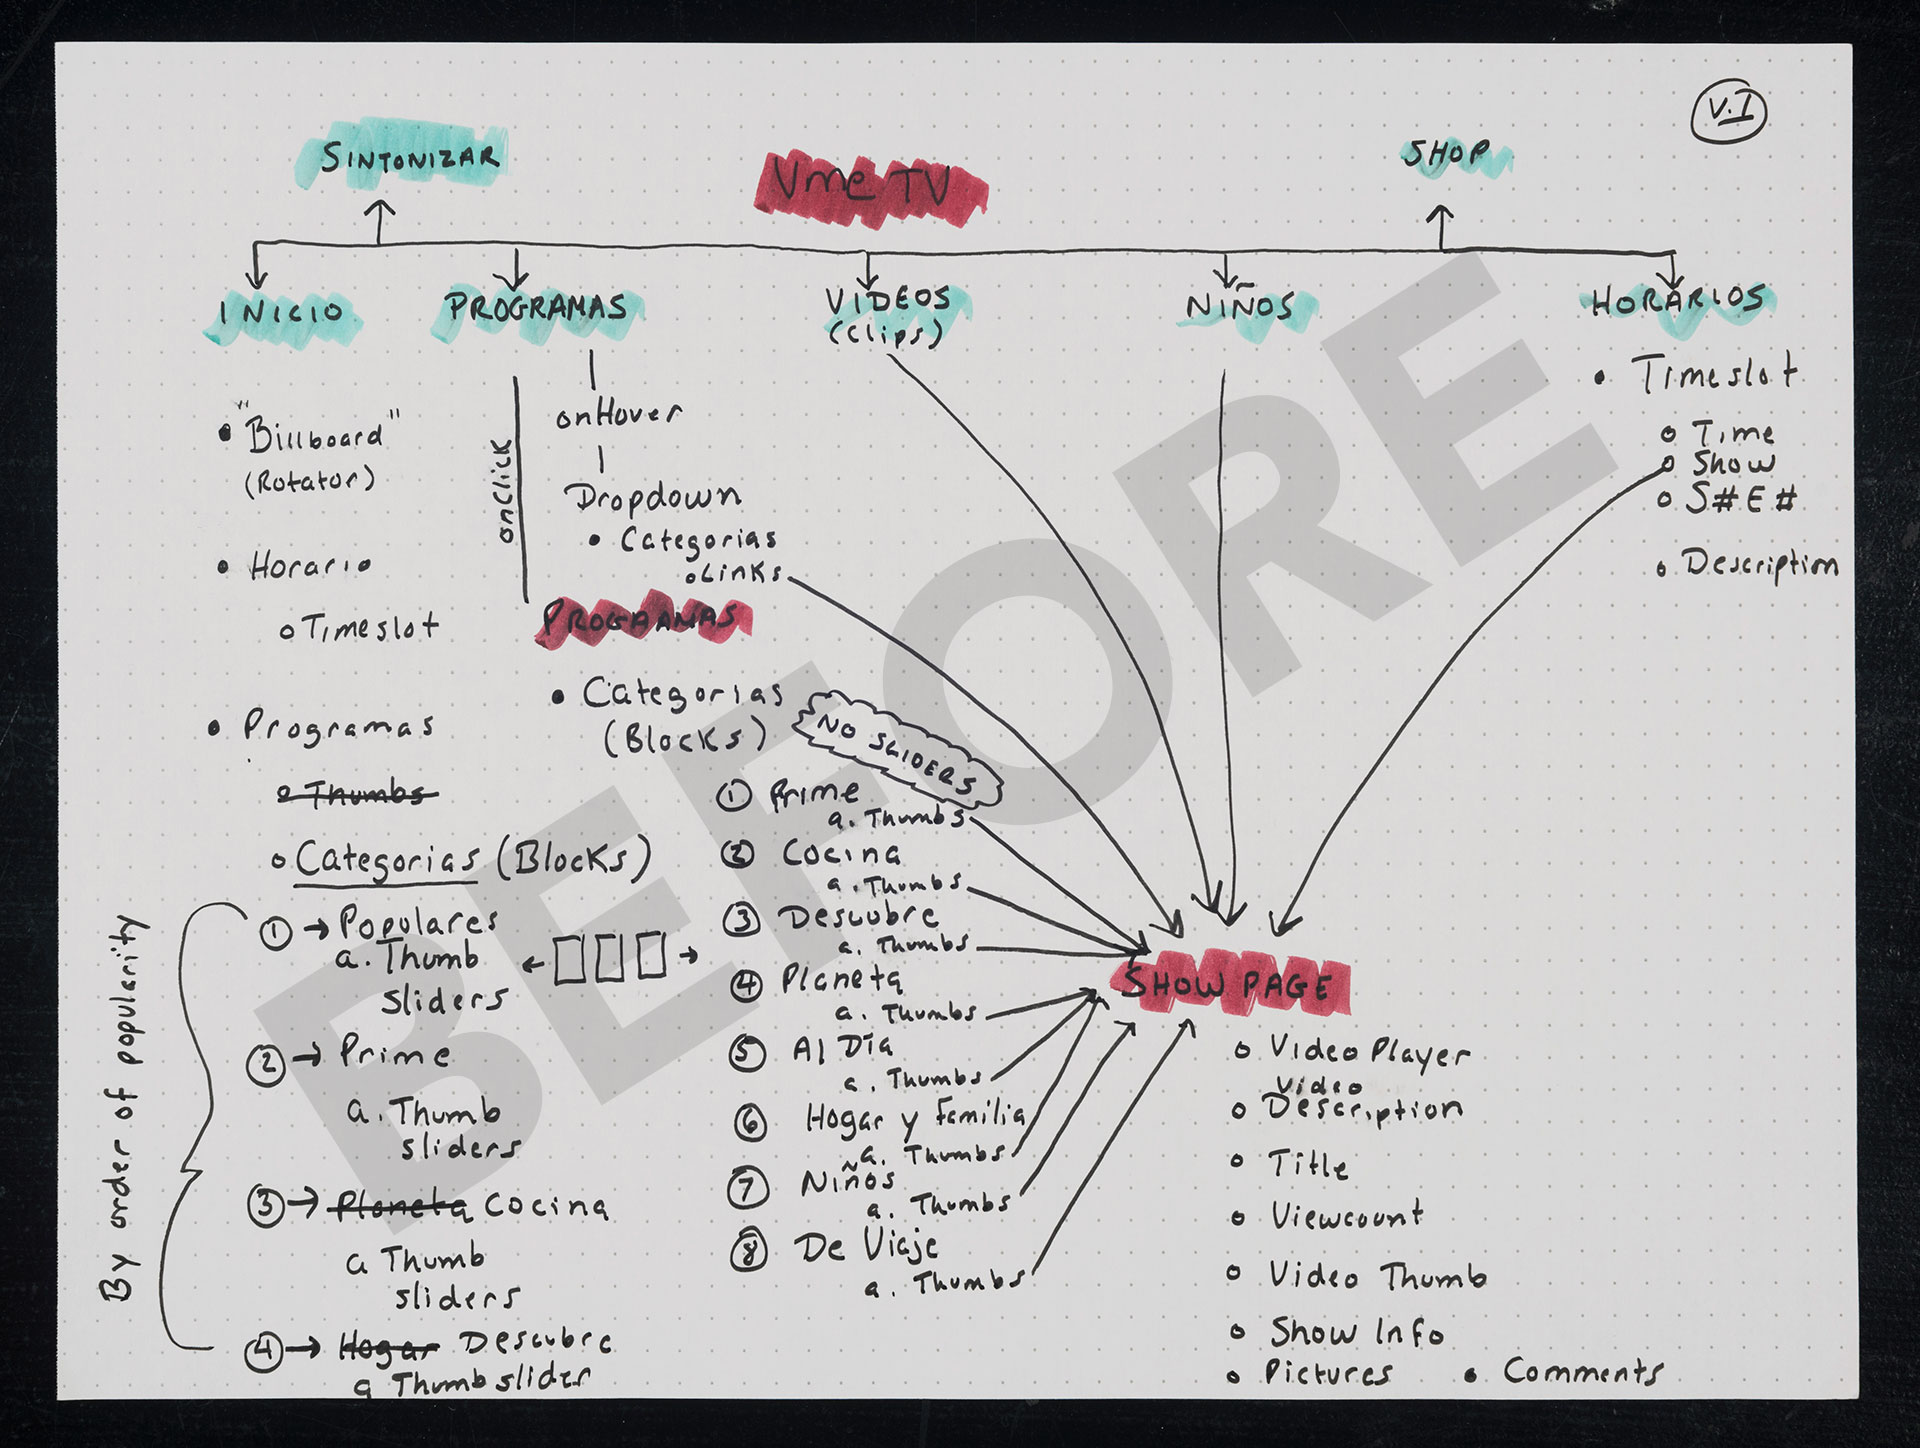 V.1
SINTONIZAR
Vme TV
SHOP
INICIO
PROGRAMAS
VIDEOS
(Clips)
NIÑOS
HORARIOS
"Billboard"
(Rotator)
Horario
Timeslot
Programas
Thumbs
Categorias (Blocks)
By order of popularity
1 → Populares
a. Thumb
sliders
2 → Prime
a. Thumb
sliders
3 → Planeta Cocina
a Thumb
sliders
4 → Hogar Descubre
a Thumbslider
onClick
onHover
Dropdown
Categorias
Links
PROGRAMAS
Categorias
(Blocks)
NO SLIDERS
1 Prime
a. Thumbs
2 Cocina
a. Thumbs
3 Descubre
a. Thumbs
4 Planeta
a. Thumbs
5 Al Dia
a. Thumbs
6 Hogar y Familia
a. Thumbs
7 Niños
a. Thumbs
8 De Viaje
a. Thumbs
Timeslot
Time
Show
S#E#
Description
SHOW PAGE
Video Player
Video
Description
Title
Viewcount
Video Thumb
Show Info
Pictures
Comments
BEFORE